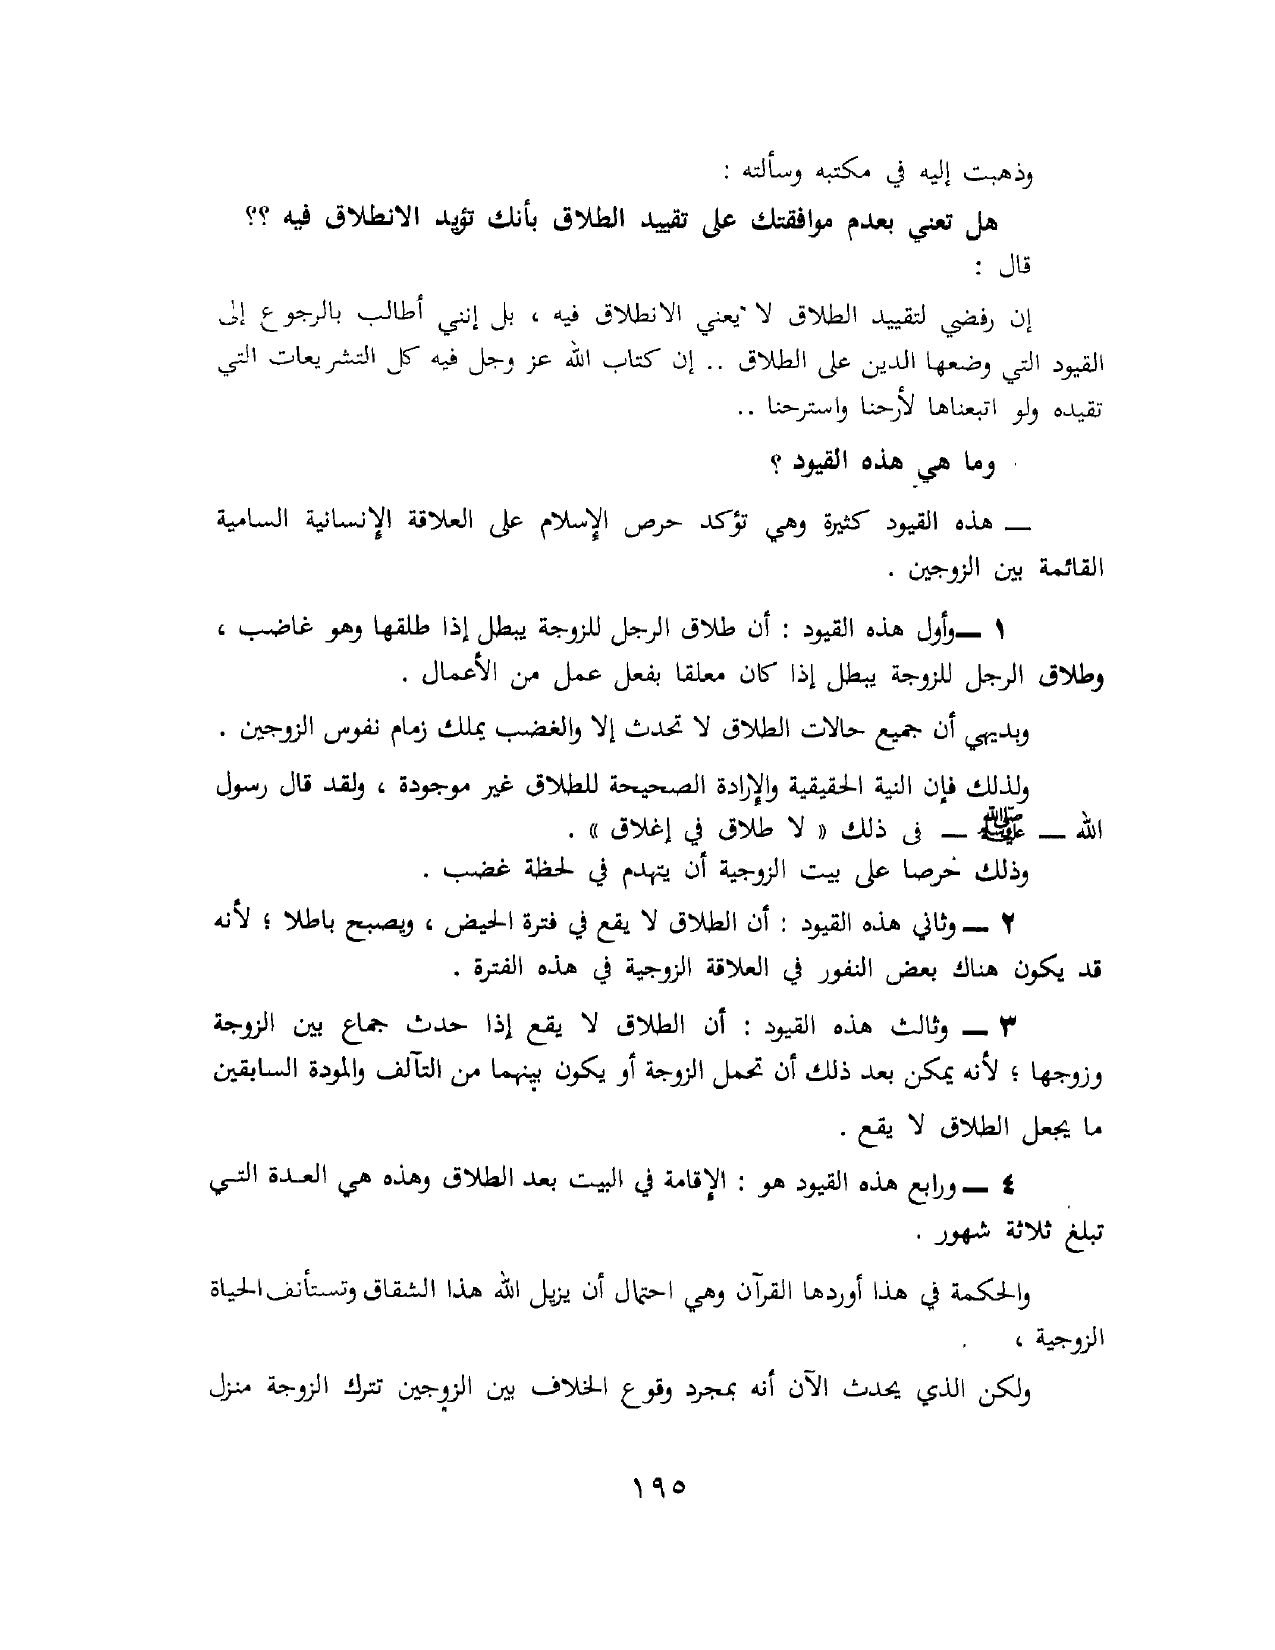 وذهبت إليه في مكتبه وسألته :
هل تعني بعدم موافقتك على تقييد الطلاق بأنك تؤيد الانطلاق فيه ؟؟
قال :
إن رفضي لتقييد الطلاق لا يعني الانطلاق فيه ، بل إنني أطالب بالرجوع إلى
القيود التي وضعها الدين على الطلاق .. إن كتاب الله عز وجل فيه كل التشريعات التي
تقيده ولو اتبعناها لأرحنا واسترحنا ..
وما هي هذه القيود ؟
— هذه القيود كثيرة وهي تؤكد حرص الإسلام على العلاقة الإنسانية السامية
القائمة بين الزوجين .
١ — وأول هذه القيود : أن طلاق الرجل للزوجة يبطل إذا طلقها وهو غاضب ،
وطلاق الرجل للزوجة يبطل إذا كان معلقا بفعل عمل من الأعمال .
وبديهي أن جميع حالات الطلاق لا تحدث إلا والغضب يملك زمام نفوس الزوجين .
ولذلك فإن النية الحقيقية والإرادة الصحيحة للطلاق غير موجودة ، ولقد قال رسول
الله — ﷺ — فى ذلك « لا طلاق في إغلاق » .
وذلك حرصا على بيت الزوجية أن يتهدم في لحظة غضب .
٢ — وثاني هذه القيود : أن الطلاق لا يقع في فترة الحيض ، ويصبح باطلا ؛ لأنه
قد يكون هناك بعض النفور في العلاقة الزوجية في هذه الفترة .
٣ — وثالث هذه القيود : أن الطلاق لا يقع إذا حدث جماع بين الزوجة
وزوجها ؛ لأنه يمكن بعد ذلك أن تحمل الزوجة أو يكون بينهما من التآلف والمودة السابقين
ما يجعل الطلاق لا يقع .
٤ — ورابع هذه القيود هو : الإقامة في البيت بعد الطلاق وهذه هي العدة التي
تبلغ ثلاثة شهور .
والحكمة في هذا أوردها القرآن وهي احتمال أن يزيل الله هذا الشقاق وتستأنف الحياة
الزوجية ،
ولكن الذي يحدث الآن أنه بمجرد وقوع الخلاف بين الزوجين تترك الزوجة منزل
١٩٥